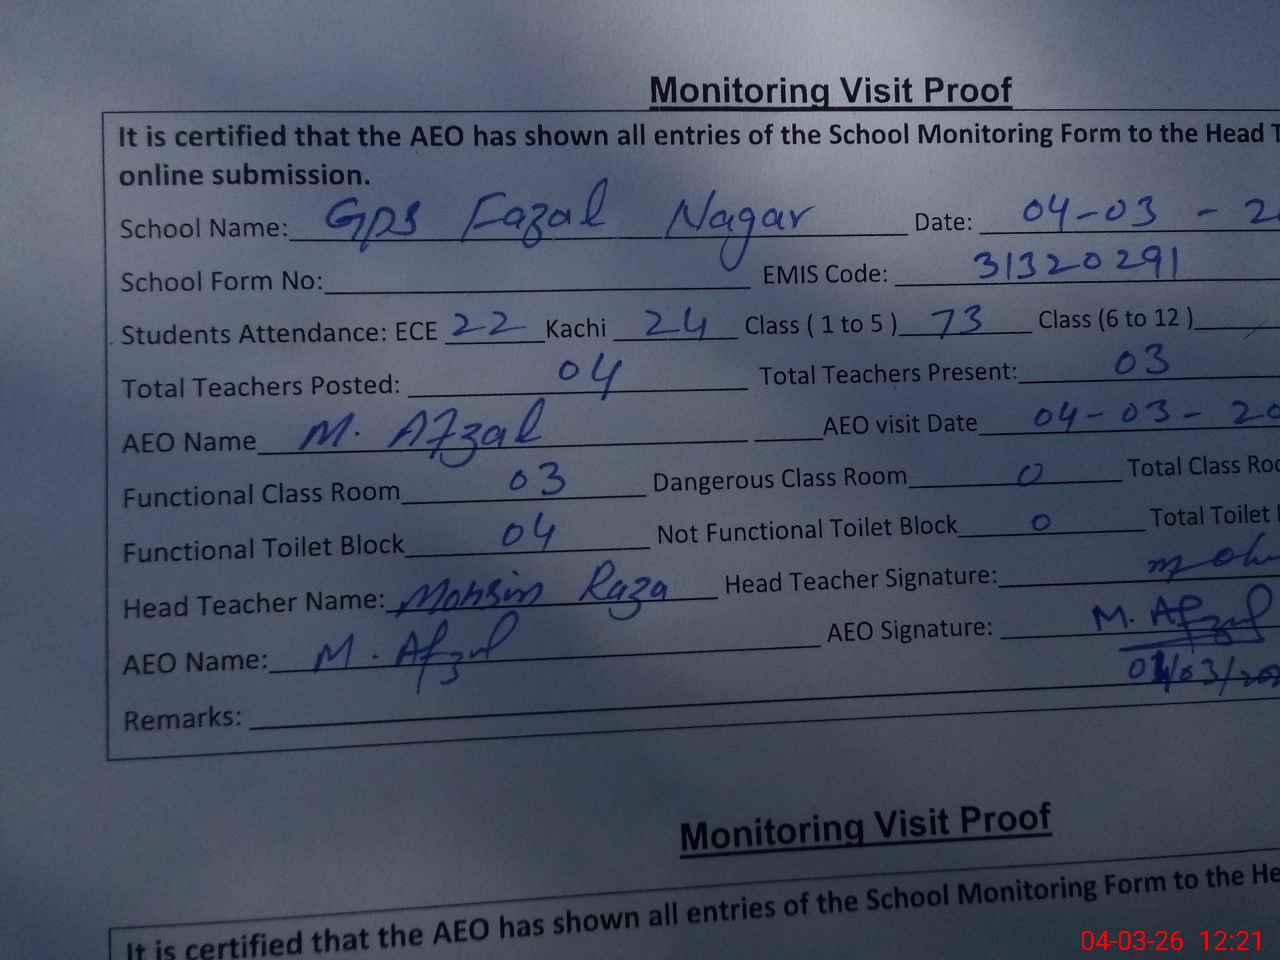 Monitoring Visit Proof
It is certified that the AEO has shown all entries of the School Monitoring Form to the Head T
online submission.
School Name: GPS Fazal Nagar Date: 04-03-2
School Form No: EMIS Code: 31320291
Students Attendance: ECE 22 Kachi 24 Class ( 1 to 5 ) 73 Class (6 to 12 )
Total Teachers Posted: 04 Total Teachers Present: 03
AEO Name M. Afzal AEO visit Date 04-03-20
Functional Class Room 03 Dangerous Class Room 0 Total Class Roo
Functional Toilet Block 04 Not Functional Toilet Block 0 Total Toilet
Head Teacher Name: Mohsin Raza Head Teacher Signature: Moh
AEO Name: M. Afzal AEO Signature: M. Afzal
04/03/20
Remarks:
Monitoring Visit Proof
It is certified that the AEO has shown all entries of the School Monitoring Form to the He
04-03-26 12:21